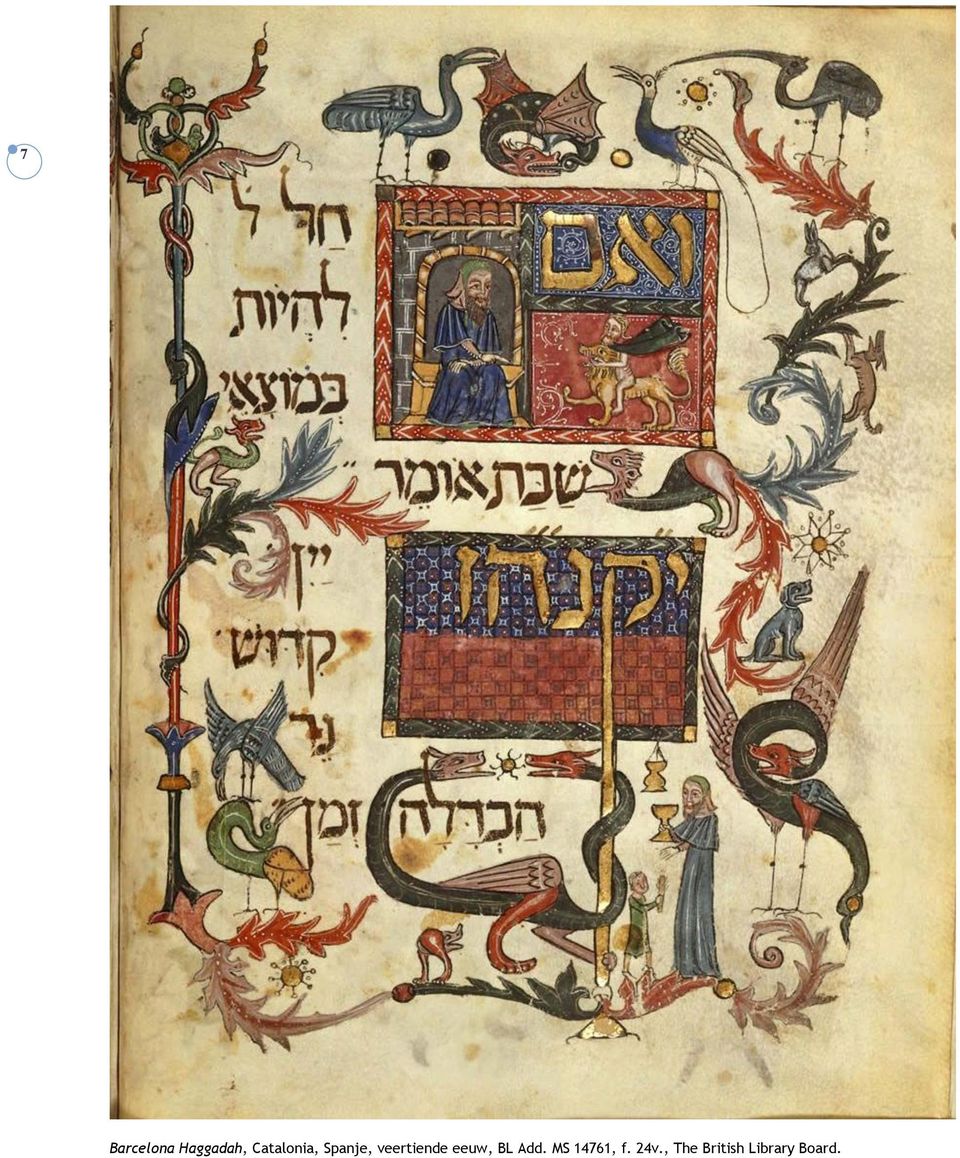 7
ואם
חַל ל
לִהְיוֹת
בְּמוֹצָאֵי
שַׁבָּת אוֹמֵר
יקנהז
יַיִן
קִדּוּשׁ
נֵר
הַבְדָּלָה זְמַן
Barcelona Haggadah, Catalonia, Spanje, veertiende eeuw, BL Add. MS 14761, f. 24v., The British Library Board.